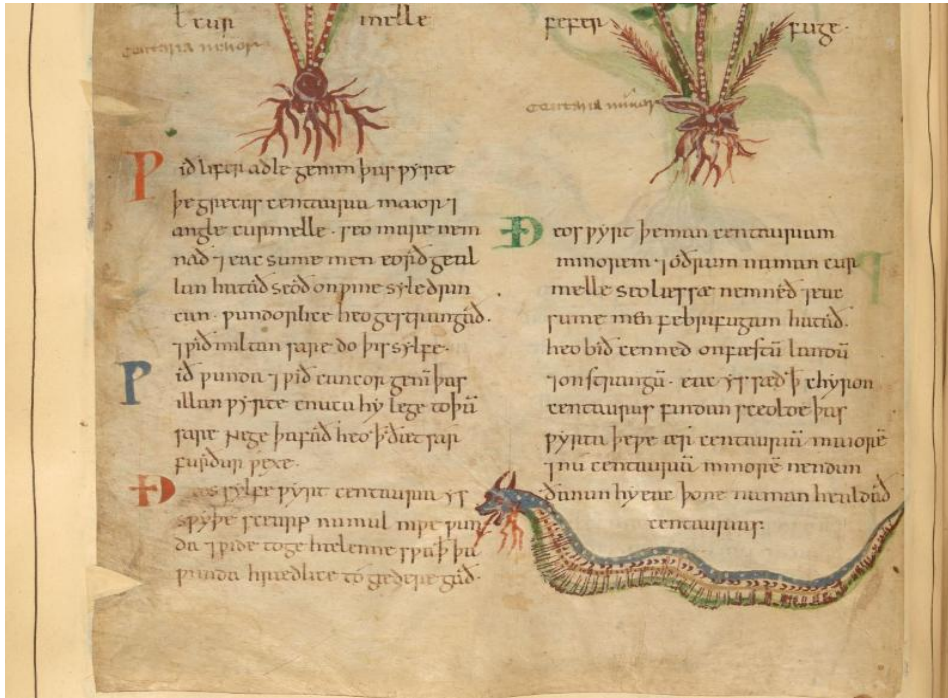 cur melle
centaria maior
fefer fuge·
centaria minor
Ƿið lifer adle genim þas ƿyrte
þe grecas centauria maior ⁊
angle curmelle · seo mare nem
nað ⁊ eac sume men eorð geal
lan hatað seoð on ƿine syle drin
can · ƿundorlice heo gestrangað·
⁊ ƿið miltan sare do þis sylfe·
Ƿið ƿunda ⁊ ƿið cancor geni̅ þas
ilcan ƿyrte cnuca hy lege to þā
sare ne ge þafað heo ꝥ ðæt sar
furður ƿexe·
Ðeos sylfe ƿyrt centauria ys
sƿyþe scearp numul niƿe ƿun
da ⁊ ƿide to ge hælenne sƿa ꝥ þa
ƿunda hrædlice to gædere gað·
Ðeos ƿyrt þe man centauriam
minorem ⁊ oðrum naman cur
melle seo læsse nemneð ⁊ eac
sume men febrifugam hatað·
heo bið cenned on fæstū landū
⁊ on strangū · eac ys sæd ꝥ chyron
centaurus findan sceolde þas
ƿyrta þe ƿe ær centauriā maiorē
⁊ nu centauriā minorē nemdun
ðanun hy eac þone naman healdað
centaurias·